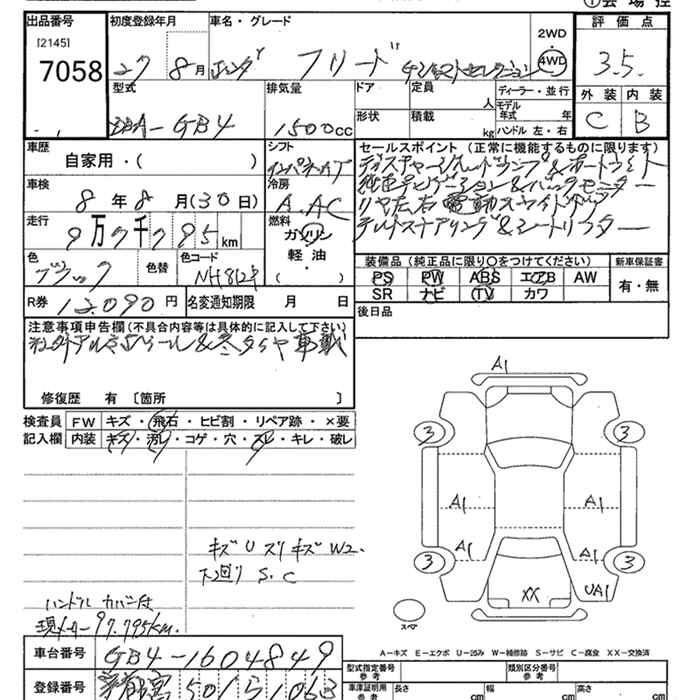 ①会場控
出品番号
[2145]
7058
初度登録年月
27 8月
車名・グレード
ホンダ フリード ジャストセレクション
2WD
4WD
評価点
3.5.
型式
DBA-GB4
排気量
1500cc
ドア
定員
人
形状
積載
kg
ディーラー・並行
モデル年式 年
ハンドル 左・右
外装 内装
C B
車歴
自家用・( )
シフト
インパネAT
車検
8年8月(30日)
冷房
A.AC
走行
9万7千795km
燃料
ガソリン
軽油
・
( )
色
ブラック
色替
色コード
NH812P
R券 12,090円
名変通知期限 月 日
セールスポイント (正常に機能するものに限ります)
ディスチャージヘッドランプ&オートライト
純正ナビゲーション&バックモニター
リヤ左右電動スライドドア
チルトステアリング&シートリフター
装備品 (純正品に限り○をつけてください)
PS PW ABS エアB AW
SR ナビ TV カワ
新車保証書
有・無
後日品
注意事項申告欄(不具合内容等は具体的に記入して下さい)
社外アルミホイール&冬タイヤ車載
修復歴 有 〔箇所 〕
検査員記入欄
FW キズ・飛石・ヒビ割・リペア跡・×要
内装 キズ・汚レ・コゲ・穴・スレ・キレ・破レ
キズU スリキズ W2.
下廻り S.C
ハンドル カバー付
現メーター97,795km.
A1
3 3
A1 A1
A1 A1
3 3
XX UA1
スペア
A-キズ E-エクボ U-凹み W-補修跡 S-サビ C-腐食 XX-交換済
車台番号 GB4-1604849
登録番号 宇都宮501ら1063
型式指定番号
参考
類別区分番号
参考
車庫証明用
参考
長さ cm 幅 cm 高さ cm